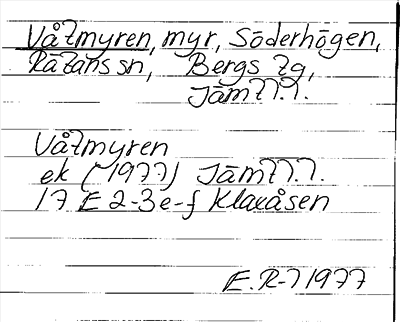 Våtmyren, myr, Söderhögen,
Rätans sn, Bergs tg,
Jämtl.l.
Våtmyren
ek (1977) Jämtl.l.
17 E 2-3 e-f Klaxåsen
E.R-l 1977